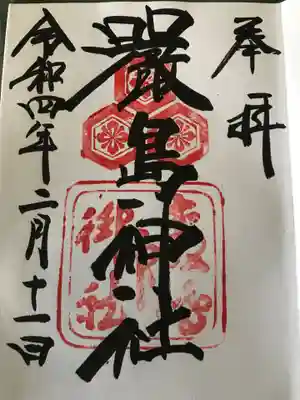 奉拝
嚴島神社
令和四年二月十一日